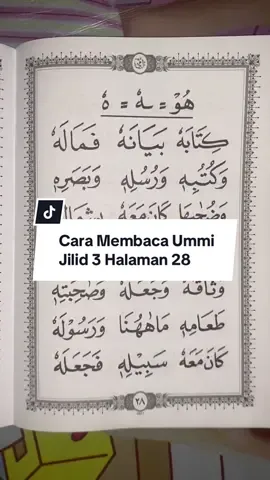 هُوْ = ـهٗ = هٗ
كِتَابَهٗ بَيَانَهٗ فَمَالَهٗ
وَكُتُبِهٖ وَرُسُلِهٖ وَبَصَرِهٖ
وَضُحٰىهَا كَانَ مَعَهٗ
Cara Membaca Ummi
Jilid 3 Halaman 28
وَثَاقَهٗ وَجَعَلَهٗ وَصَاحِبَتِهٖ
طَعَامِهٖ مَاهٰهُنَا وَرَسُوْلَهٗ
كَانَ مَعَهٗ سَبِيْلِهٖ فَجَعَلَهٗ
٢٨